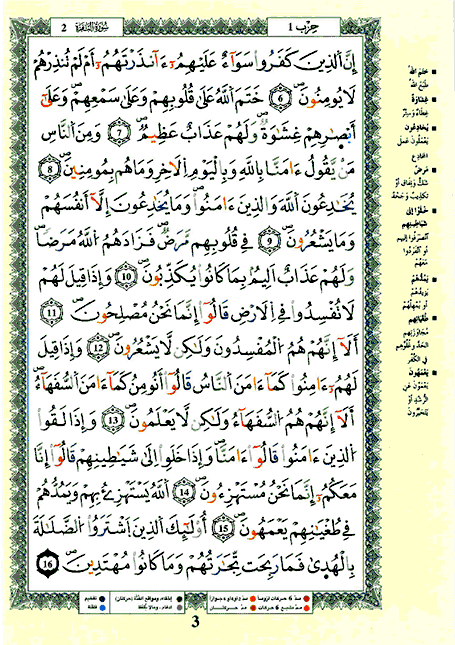 حِزْب 1
سُورَةُ البَقَرَةِ 2
إِنَّ اَلذِينَ كَفَرُواْ سَوَآءٌ عَلَيْهِمُۥٓ ءَآنذَرْتَهُمُۥٓ أَمْ لَمْ تُنذِرْهُمْ
لَا يُومِنُونَ 6 خَتَمَ اَللَّهُ عَلَىٰ قُلُوبِهِمْ وَعَلَىٰ سَمْعِهِمْ وَعَلَىٰٓ
أَبْصَٰرِهِمْ غِشَٰوَةٌ وَلَهُمْ عَذَابٌ عَظِيمٌ 7 وَمِنَ اَلنَّاسِ
مَنْ يَّقُولُ ءَامَنَّا بِاللَّهِ وَبِالْيَوْمِ اِلَاخِرِ وَمَا هُم بِمُومِنِينَ 8
يُخَٰدِعُونَ اَللَّهَ وَالذِينَ ءَامَنُواْ وَمَا يُخَٰدِعُونَ إِلَّآ أَنفُسَهُمْ
وَمَا يَشْعُرُونَ 9 فِے قُلُوبِهِم مَّرَضٌ فَزَادَهُمُ اُللَّهُ مَرَضاً
وَلَهُمْ عَذَابٌ اَلِيمٌ بِمَا كَانُواْ يُكَذِّبُونَ 10 وَإِذَا قِيلَ لَهُمْ
لَا تُفْسِدُواْ فِے اِلَارْضِ قَالُوٓاْ إِنَّمَا نَحْنُ مُصْلِحُونَ 11
أَلَآ إِنَّهُمْ هُمُ اُلْمُفْسِدُونَ وَلَٰكِن لَّا يَشْعُرُونَ 12 وَإِذَا قِيلَ
لَهُمُۥٓ ءَامِنُواْ كَمَآ ءَامَنَ اَلنَّاسُ قَالُوٓاْ أَنُومِنُ كَمَآ ءَامَنَ اَلسُّفَهَآءُ
أَلَآ إِنَّهُمْ هُمُ اُلسُّفَهَآءُ وَلَٰكِن لَّا يَعْلَمُونَ 13 وَإِذَا لَقُواْ
اُلذِينَ ءَامَنُواْ قَالُوٓاْ ءَامَنَّا وَإِذَا خَلَوِاْ اِلَىٰ شَيَٰطِينِهِمْ قَالُوٓاْ إِنَّا
مَعَكُمُۥٓ إِنَّمَا نَحْنُ مُسْتَهْزِءُونَ 14 اَللَّهُ يَسْتَهْزِئُ بِهِمْ وَيَمُدُّهُمْ
فِے طُغْيَٰنِهِمْ يَعْمَهُونَ 15 أُوْلَٰٓئِكَ اَلذِينَ اَشْتَرَوُاْ اُلضَّلَٰلَةَ
بِالْهُدَىٰ فَمَا رَبِحَت تِّجَٰرَتُهُمْ وَمَا كَانُواْ مُهْتَدِينَ 16
■ خَتَمَ اللهُ
طَبَعَ اللهُ
■ غِشَاوَةٌ
غِطَاءٌ وَسِتْرٌ
■ يُخَادِعُونَ
يَعْمَلُونَ عَمَلَ
المُخَادِعِ
■ مَرَضٌ
شَكٌّ وَنِفَاقٌ أَوْ
تَكْذِيبٌ وَجَحْدٌ
■ خَلَوْا إِلَى
شَيَاطِينِهِم
انْصَرَفُوا إِلَيْهِم
أَوِ انْفَرَدُوا
مَعَهُمْ
■ يَمُدُّهُمْ
يَزِيدُهُمْ
أَوْ يُمْهِلُهُمْ
■ طُغْيَانِهِمْ
مُجَاوَزَتِهِم
الحَدَّ وَغُلُوِّهِم
فِي الكُفْرِ
■ يَعْمَهُونَ
يَعْمَوْنَ عَنِ
الرُّشْدِ أَوْ
يَتَحَيَّرُونَ
مدّ 6 حركات لزوماً
مدّ مشبع 6 حركات
مدّ حركتان
إخفاء، ومواقع الغُنَّة (حركتان)
إدغام، وما لا يُلفظ
تفخيم
قلقلة
3